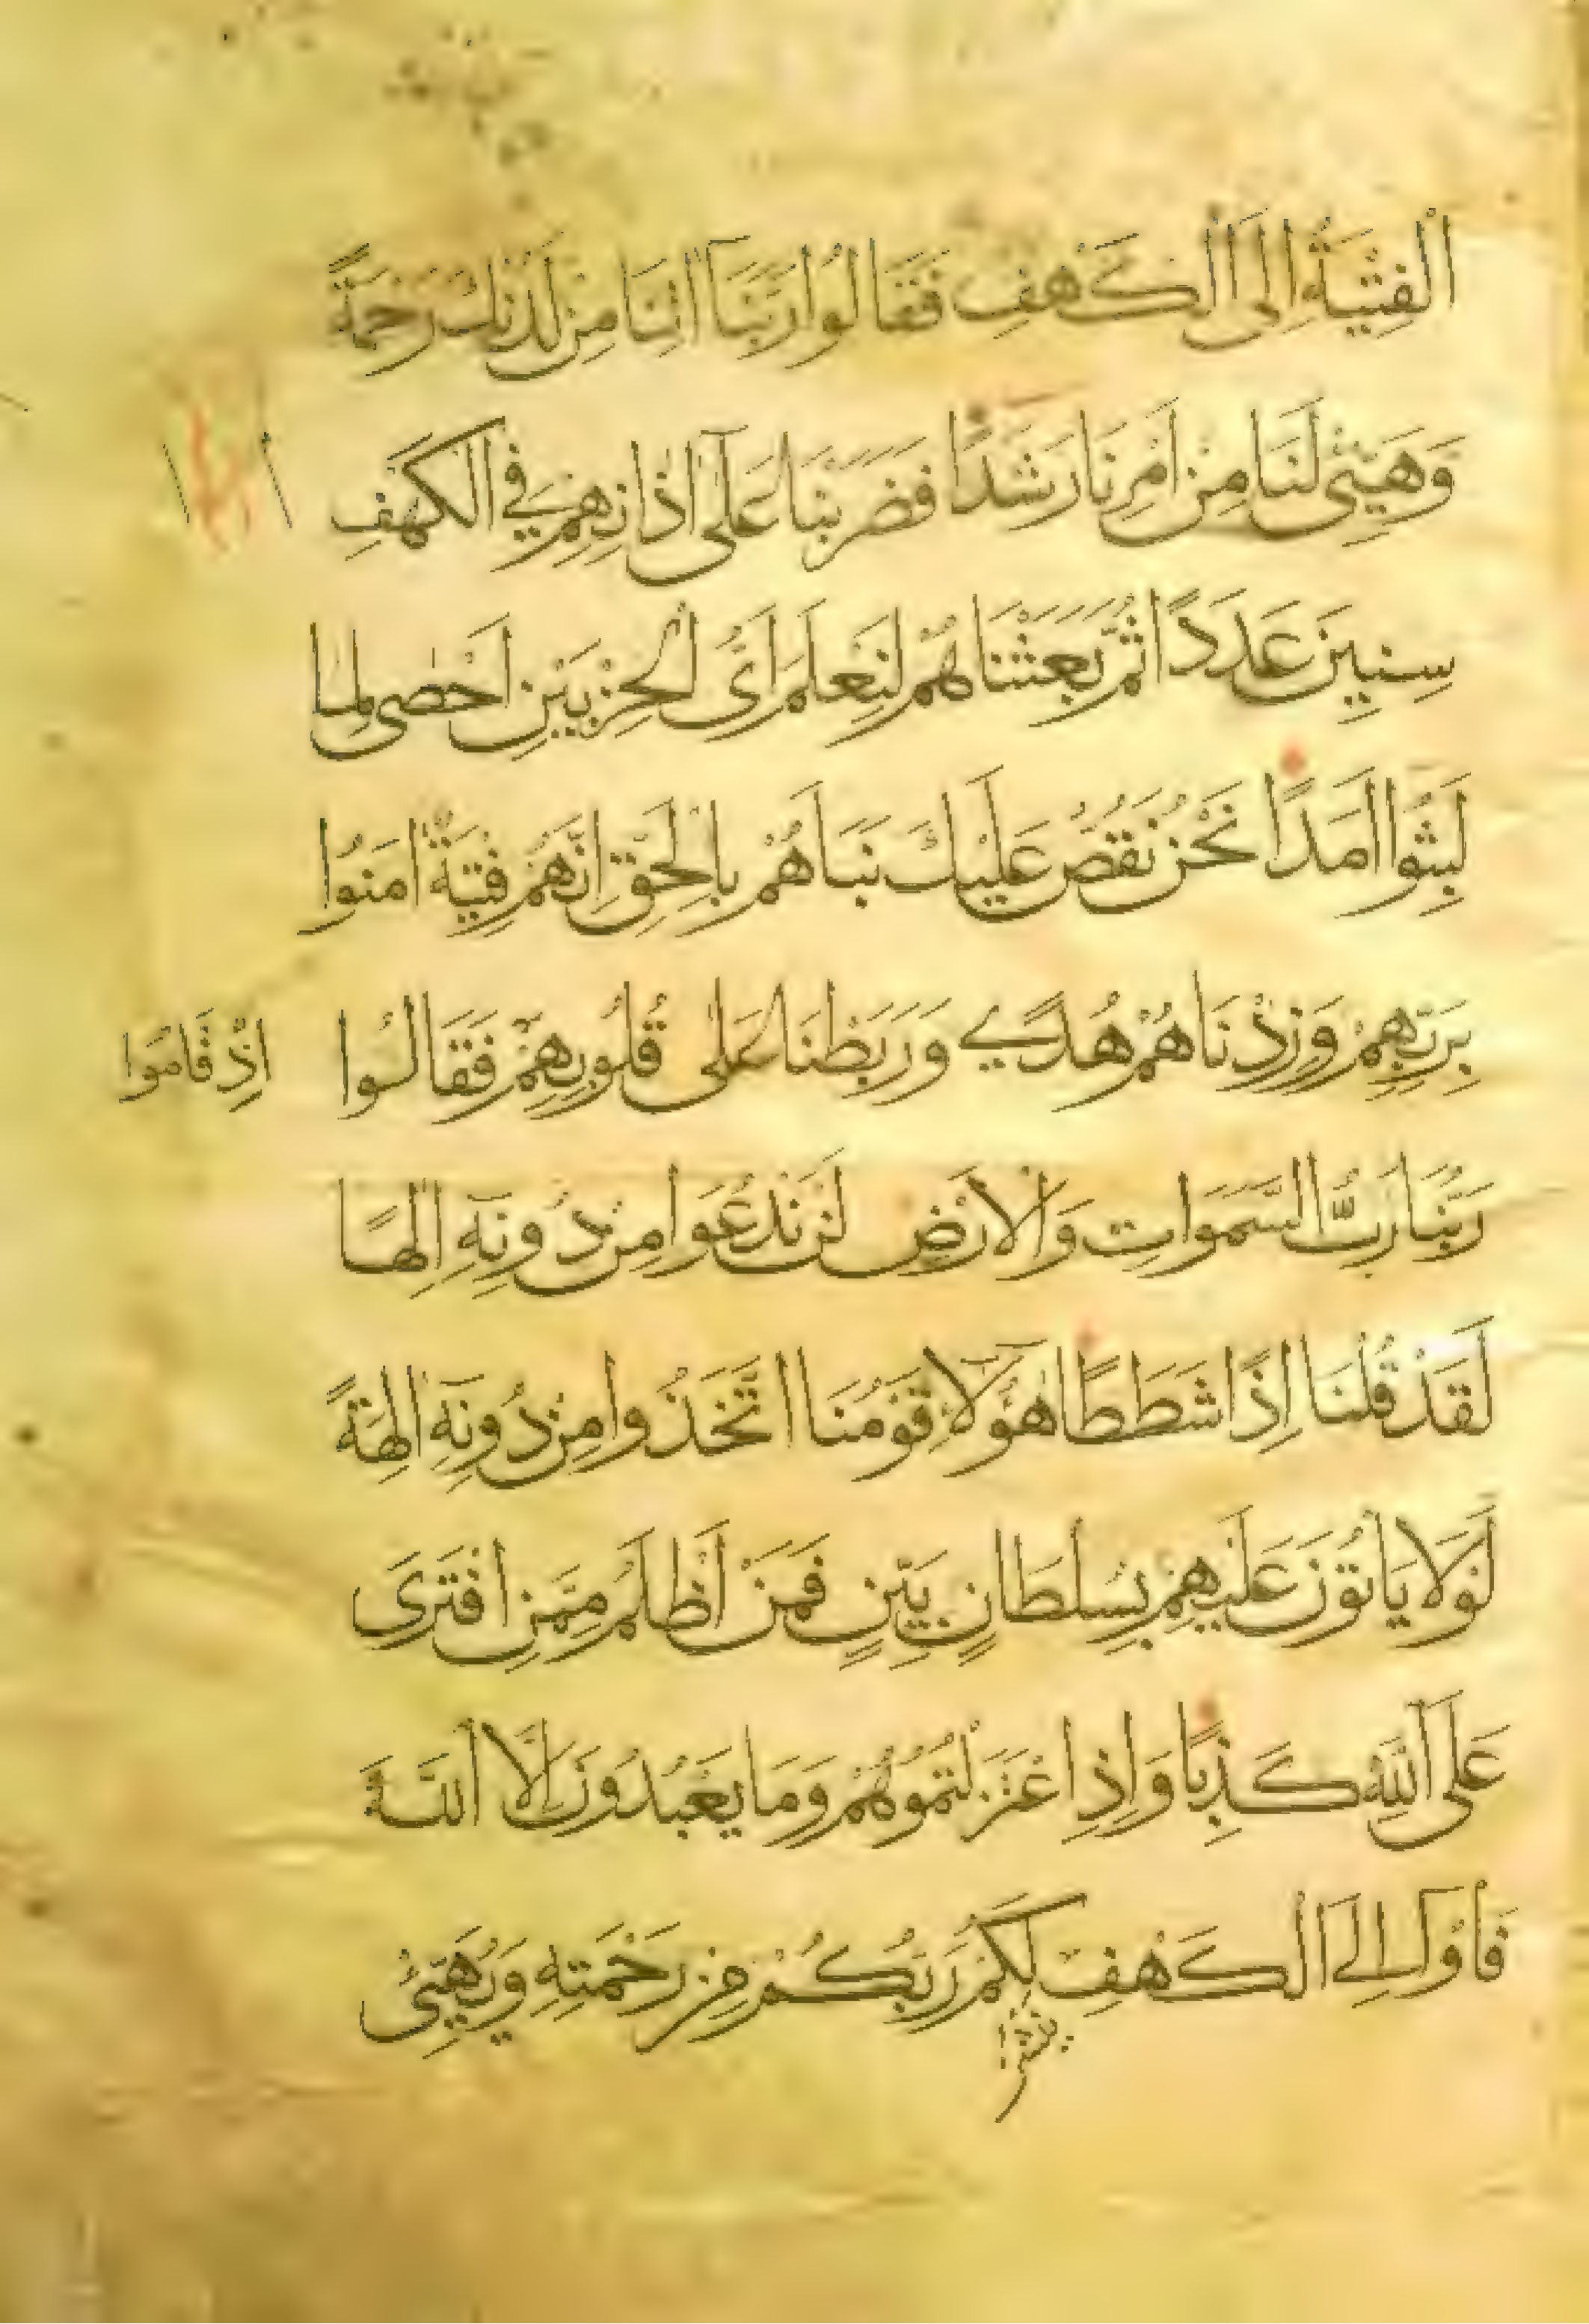 الْفِتْيَةُ اِلَى الْكَهْفِ فَقَالُوا رَبَّنَا اٰتِنَا مِنْ لَدُنْكَ رَحْمَةً
وَهَيِّئْ لَنَا مِنْ اَمْرِنَا رَشَدًا فَضَرَبْنَا عَلَى اٰذَانِهِمْ فِي الْكَهْفِ
سِنِينَ عَدَدًا ثُمَّ بَعَثْنَاهُمْ لِنَعْلَمَ اَىُّ الْحِزْبَيْنِ اَحْصٰى لِمَا
لَبِثُوا اَمَدًا نَحْنُ نَقُصُّ عَلَيْكَ نَبَاَهُمْ بِالْحَقِّ اِنَّهُمْ فِتْيَةٌ اٰمَنُوا
بِرَبِّهِمْ وَزِدْنَاهُمْ هُدًي وَرَبَطْنَا عَلٰى قُلُوبِهِمْ فَقَالُوا
اِذْ قَامُوا
رَبُّنَا رَبُّ السَّمَوَاتِ وَالْاَرْضِ لَنْ نَدْعُوَا مِنْ دُونِهِ اِلٰهًا
لَقَدْ قُلْنَا اِذًا شَطَطًا هٰؤُلَاءِ قَوْمُنَا اتَّخَذُوا مِنْ دُونِهِ اٰلِهَةً
لَوْلَا يَاْتُونَ عَلَيْهِمْ بِسُلْطَانٍ بَيِّنٍ فَمَنْ اَظْلَمُ مِمَّنِ افْتَرَى
عَلَى اللَّهِ كَذِبًا وَاِذِ اعْتَزَلْتُمُوهُمْ وَمَا يَعْبُدُونَ اِلَّا اللَّهَ
فَاْوُ اِلَى الْكَهْفِ لَكُمْ رَبُّكُمْ مِنْ رَحْمَتِهِ وَيُهَيِّئْ
ينشر